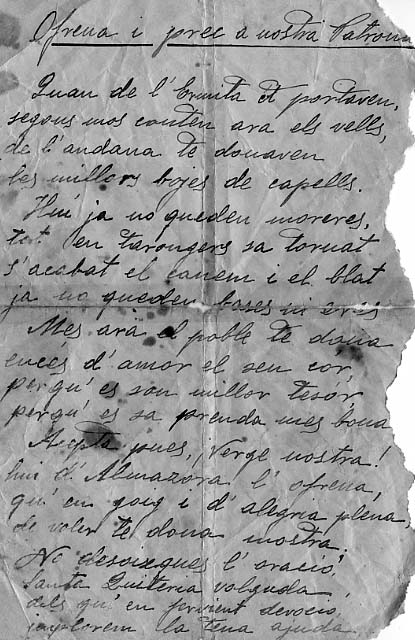 Ofrena i prec a nostra Patrona
Quan de l'Ermita et portaven,
segons mos conten ara els vells,
de l'andana te donaven
les millors bojes de capells.
Hui ja no queden moreres,
tot en tarongers sa tornat
s'acabat el canem i el blat
ja no queden bases ni eres
Mes ara el poble te dona
encés d'amor el seu cor,
perqu'es son millor tesór
perqu'es sa prenda mes bona
Acepta pues, ¡Verge nostra!
hui d'Almazora l'ofrena,
qu'en goig i d'alegria plena
de voler te dona mostra.
No desoixques l'oració,
Santa Quiteria volguda
dels qu'en fervient devoció
implorem la teua ajuda